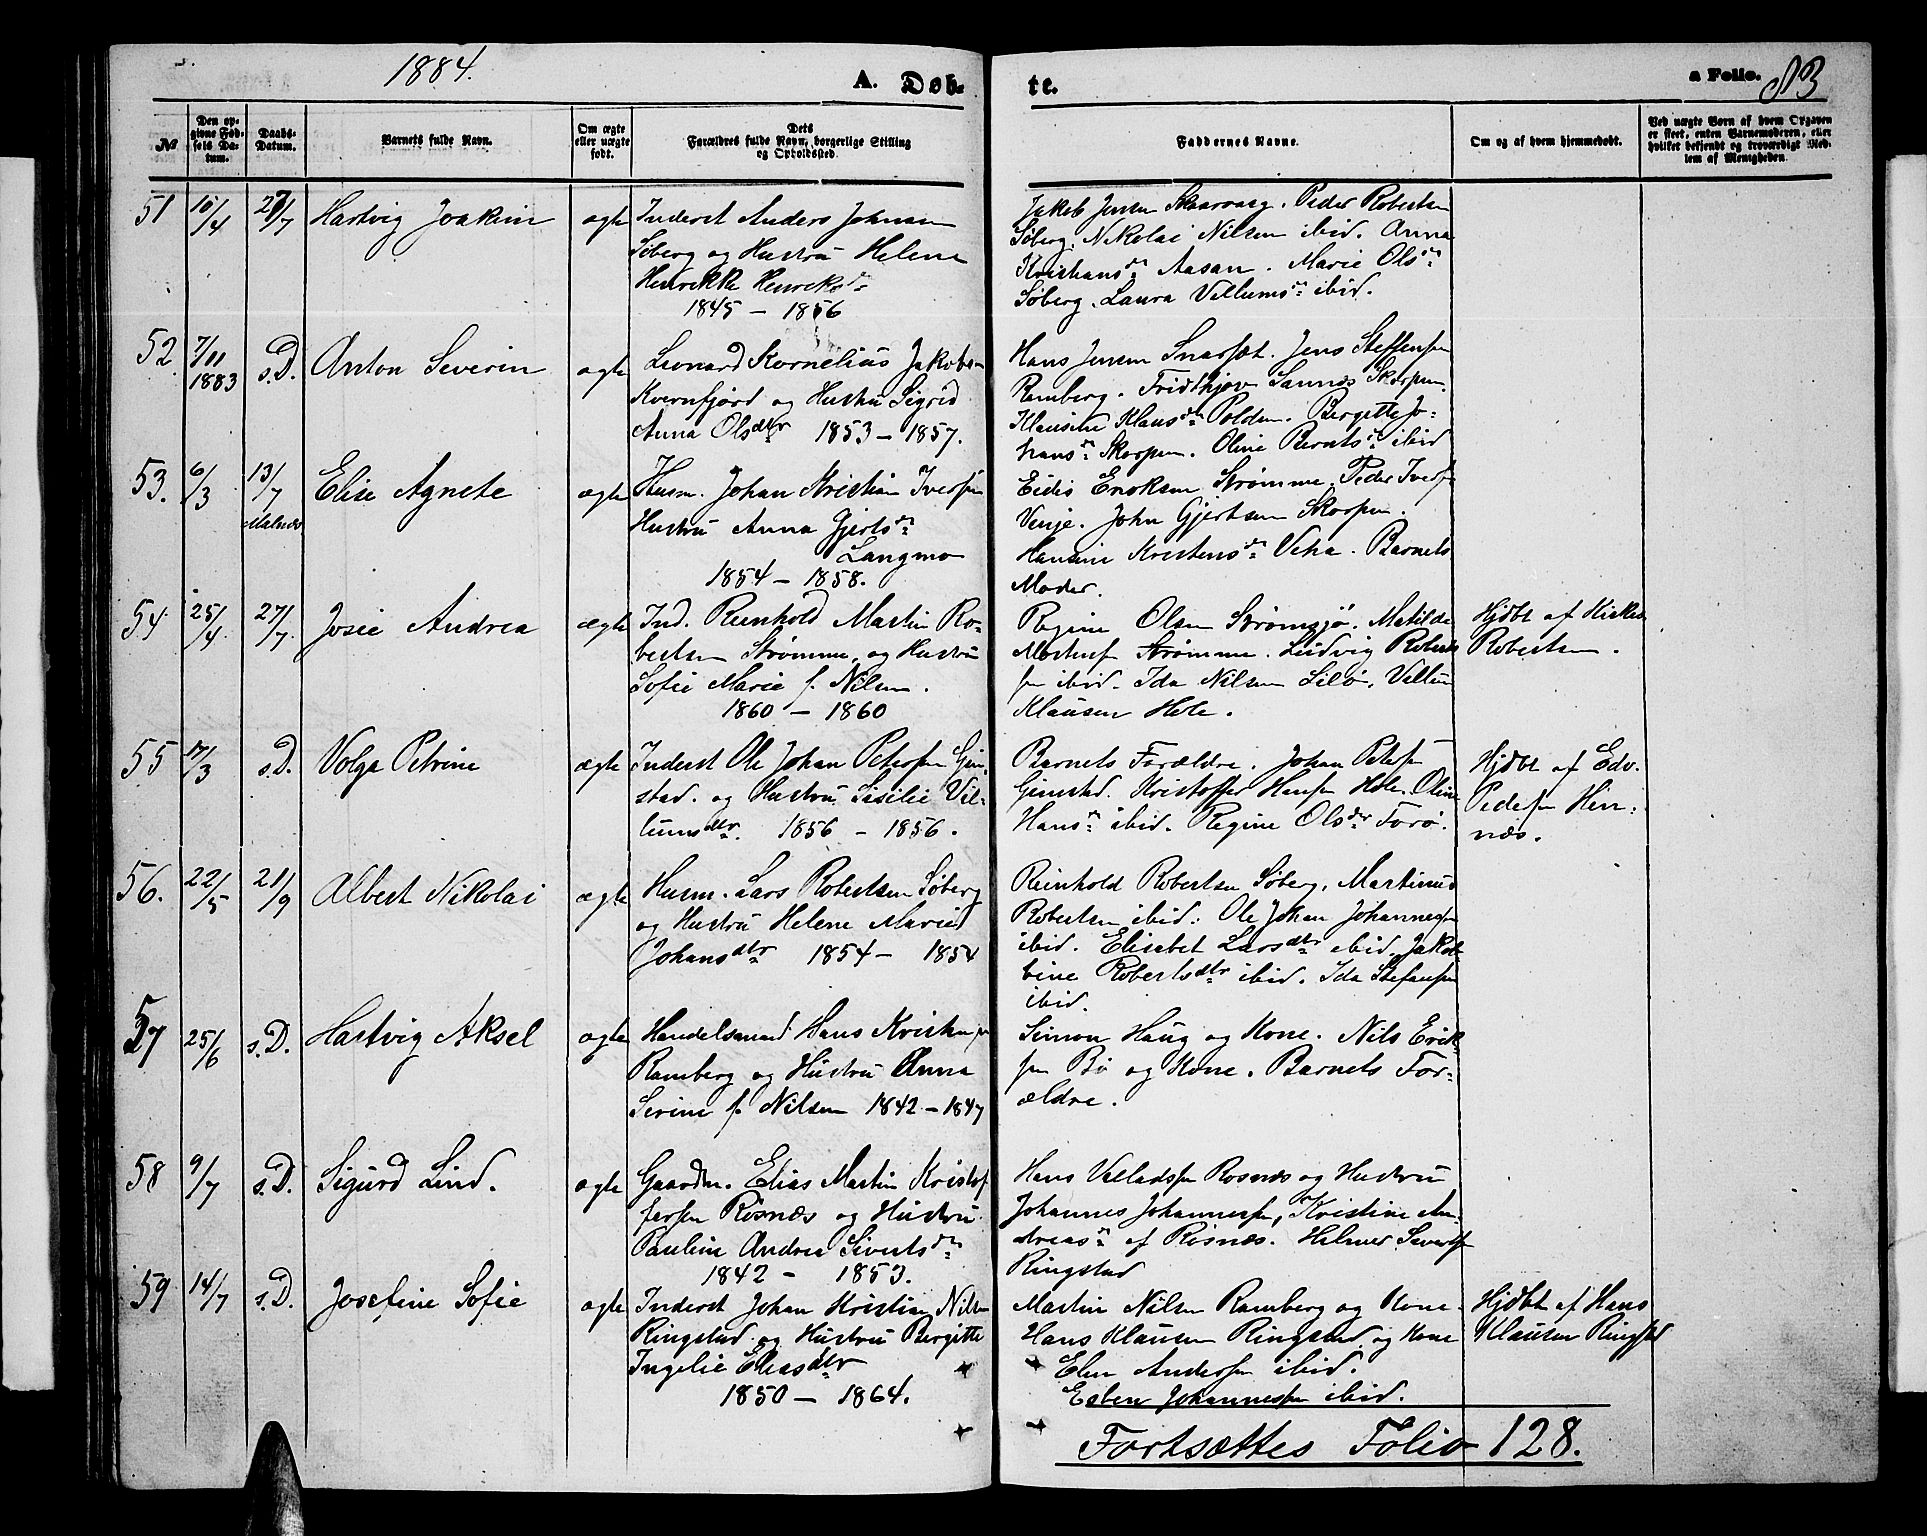 1884.
A. Døb-
te.
a Folio. 83
№
Den op-
givne Fød-
sels Da-
tum.
Daabs-
Datum.
Barnets fulde Navn.
Om ægte
eller uægte
født.
Dets
Forældres fulde Navn, borgerlige Stilling
og Opholdssted.
Faddernes Navne.
Om og af hvem hjemmedøbt.
Ved uægte Børn af hvem Opgaven
er skeet, enten Barnemoderen, eller
hvilket bekjendt og troværdigt Med-
lem af Menigheden.
51
10/4
27/7
Hartvig Joakim
ægte
Inderst Anders Johnsen
Söberg og Hustru Helene
Henrikke Henriksdr
1845 – 1856
Jakob Jensen Skaarvaag. Peder Robertsen
Söberg. Nikolai Nilsen ibid. Anna
Kristiansdr Aasan. Marie Olsdr
Söberg. Laura Villumsdr ibid.
52.
7/11
1883
s.D.
Anton Severin
ægte
Leonard Kornelius Jakobsen
Kvernfjord og Hustru Sigrid
Anna Olsdtr 1853 – 1857.
Hans Jensen Snarset. Jens Steffensen
Ramberg. Fridthjov Sannes Skorpen.
Klausine Klausdr Polden. Bergitte Jo-
hansdr Skorpen. Oline Berntsdr ibid
53.
6/3
13/7
Malnes
Elise Agnete
ægte
Husm. Johan Kristian Iversen
Hustru Anna Gjertsdr
Langmo
1854 – 1858.
Eidis Eriksen Strømme. Peder Iversen
Vinje. John Gjertsen Skorpen.
Hansine Kristensdr Veha. Barnets
Moder.
54.
25/4.
27/7.
Josie Andrea
ægte
Ind. Reinhold Martin Ro-
bertsen Strømme, og Hustru
Sofie Marie f. Nilsen.
1860 – 1860
Regine Olsen Strømsjö. Matilde
Mortensen Strømme. Ludvig Roberts
sen ibid. Ida Nilsen Lilö. Villum
Klausen Hole.
Hjdbt af
Robertsen.
55
17/3
s.D.
Volga Petrine
ægte
Inderst Ole Johan Petersen Gim-
stad. og Hustru Sisilie Vil-
lumsdtr. 1856 – 1856.
Barnets Forældre. Johan Petersen
Gimstad. Kristoffer Hansen Hole. Oline
Hansdr ibid. Regine Olsdtr Forö.
Hjdbt af Edv.
Pedersen Hin-
næs.
56.
22/5
21/9
Albert Nikolai
ægte
Husm. Lars Robertsen Söberg
og Hustru Helene Marie
Johansdtr 1854 – 1854
Reinhold Robertsen Söberg. Martinus
Robertsen ibid. Ole Johan Johannessen
ibid. Elisabet Larsdtr ibid. Jako-
bine Robertsdtr ibid. Ida Stefansen
ibid.
57
25/6
s.D.
Hartvig Aksel
ægte
Handelsmand Hans Kristensen
Ramberg og Hustru Anna
Serine f. Nilsen 1842 – 1847
Simon Haug og Kone. Nils Erik-
sen Bö og Kone. Barnets For-
ældre.
58
9/7
s.D.
Sigurd Lind.
ægte
Gaardm. Elias Martin Kristof
fersen Risnæs og Hustru
Pauline Andrea Sivertsdr
1842 – 1853.
Hans Villadsen Rosnæs og Hustru
Johannes Johannessen, Kristine An-
dreasdr af Risnæs. Helmer Sivertsen
Ringstad
59
14/7
s.D.
Josefine Sofie
ægte
Inderst Johan Kristian Nilsen
Ringstad og Hustru Bergitte
Ingelie Eliasdtr
1850 – 1864.
Martin Nilsen Ramberg og Kone.
Hans Klausen Ringstad og Kone
Elen Andersen ibid.
Esben Johannessen ibid.
Hjdbt af Hans
Klausen Ringstad
Fortsættes Folio 128.